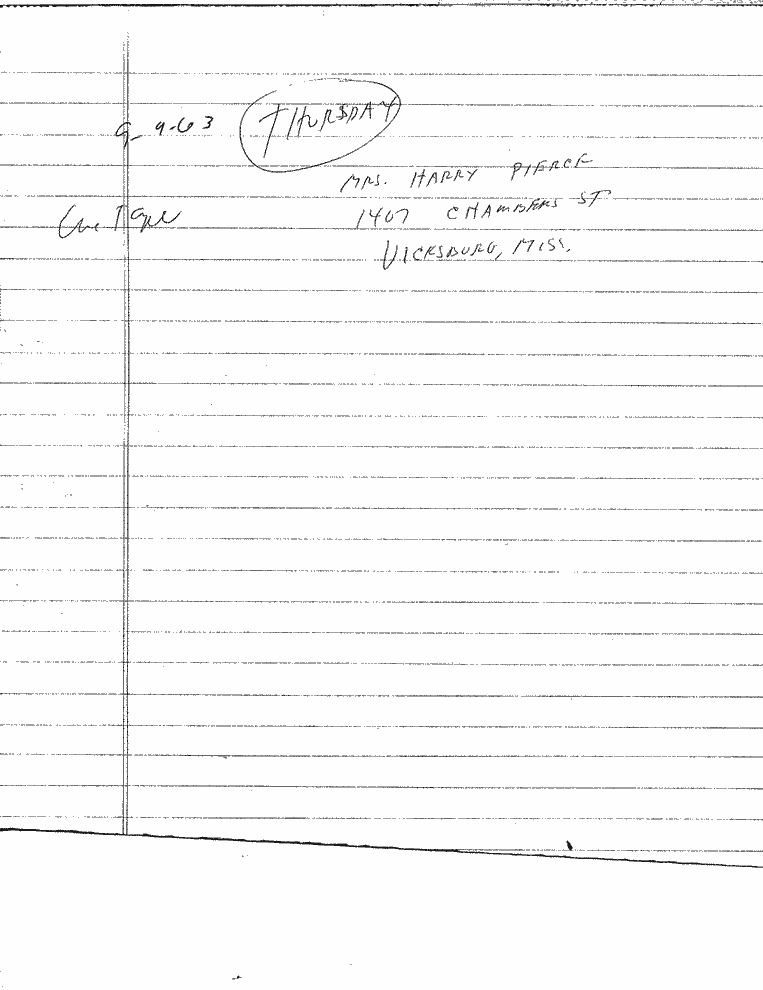 9-9-63 THURSDAY
MRS. HARRY PIERCE
1407 CHAMBERS ST
Tape
VICKSBURG, MISS.